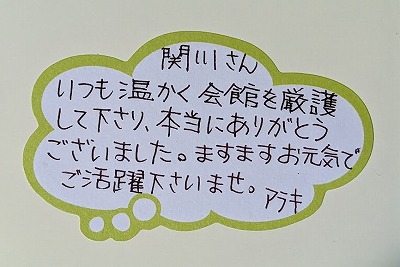 関川さん
いつも温かく会館を厳護
して下さり、本当にありがとう
ございました。ますますお元気で
ご活躍下さいませ。
アラキ